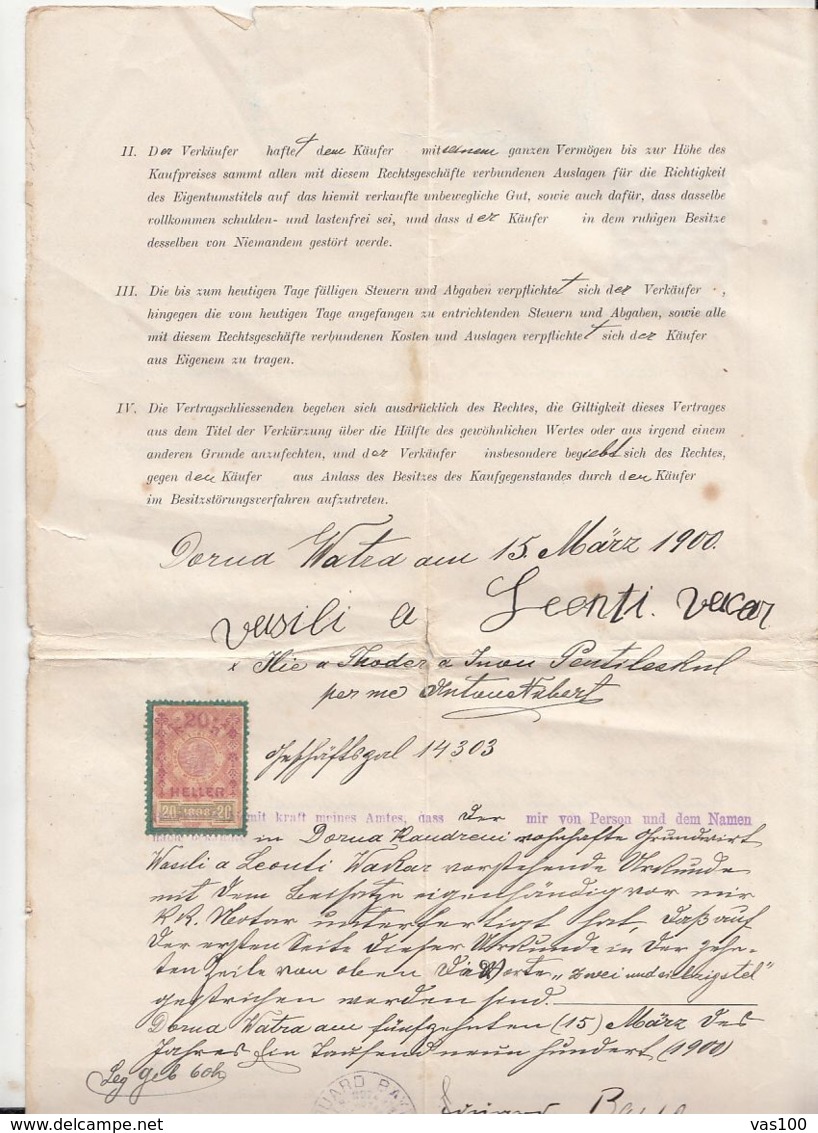 II. Der Verkäufer haftet dem Käufer mit seinem ganzen Vermögen bis zur Höhe des
Kaufpreises sammt allen mit diesem Rechtsgeschäfte verbundenen Auslagen für die Richtigkeit
des Eigentumstitels auf das hiemit verkaufte unbewegliche Gut, sowie auch dafür, dass dasselbe
vollkommen schulden- und lastenfrei sei, und dass der Käufer in dem ruhigen Besitze
desselben von Niemandem gestört werde.
III. Die bis zum heutigen Tage fälligen Steuern und Abgaben verpflichtet sich der Verkäufer ,
hingegen die vom heutigen Tage angefangen zu entrichtenden Steuern und Abgaben, sowie alle
mit diesem Rechtsgeschäfte verbundenen Kosten und Auslagen verpflichtet sich der Käufer
aus Eigenem zu tragen.
IV. Die Vertragschliessenden begeben sich ausdrücklich des Rechtes, die Giltigkeit dieses Vertrages
aus dem Titel der Verkürzung über die Hälfte des gewöhnlichen Wertes oder aus irgend einem
anderen Grunde anzufechten, und der Verkäufer insbesondere begiebt sich des Rechtes,
gegen den Käufer aus Anlass des Besitzes des Kaufgegenstandes durch den Käufer
im Besitzstörungsverfahren aufzutreten.
Dorna Watra am 15. März 1900.
Vasili a Leonti. Vacar
x Ilie a Thoder a Inon Pentileskul
per me Anton
20
HELLER
20 1898 20
Geschäftszal 14303
mit kraft meines Amtes, dass der mir von Person und dem Namen
in Dorna Kandreni wohnhafte Grundwirt
Wasili a Leonti Wakar vorstehende Urkunde
mit dem Beisatze eigenhändig vor mir
k.k. Notar unterfertigt hat, daß auf
der ersten Seite dieser Urkunde in der zehn-
ten Zeile von oben die Worte „zwei und
gestrichen worden sind.
Dorna Watra am fünfzehnten (15) März des
Jahres Ein Tausend neun hundert (1900)
Leg geb 60h
Eduard
vas100